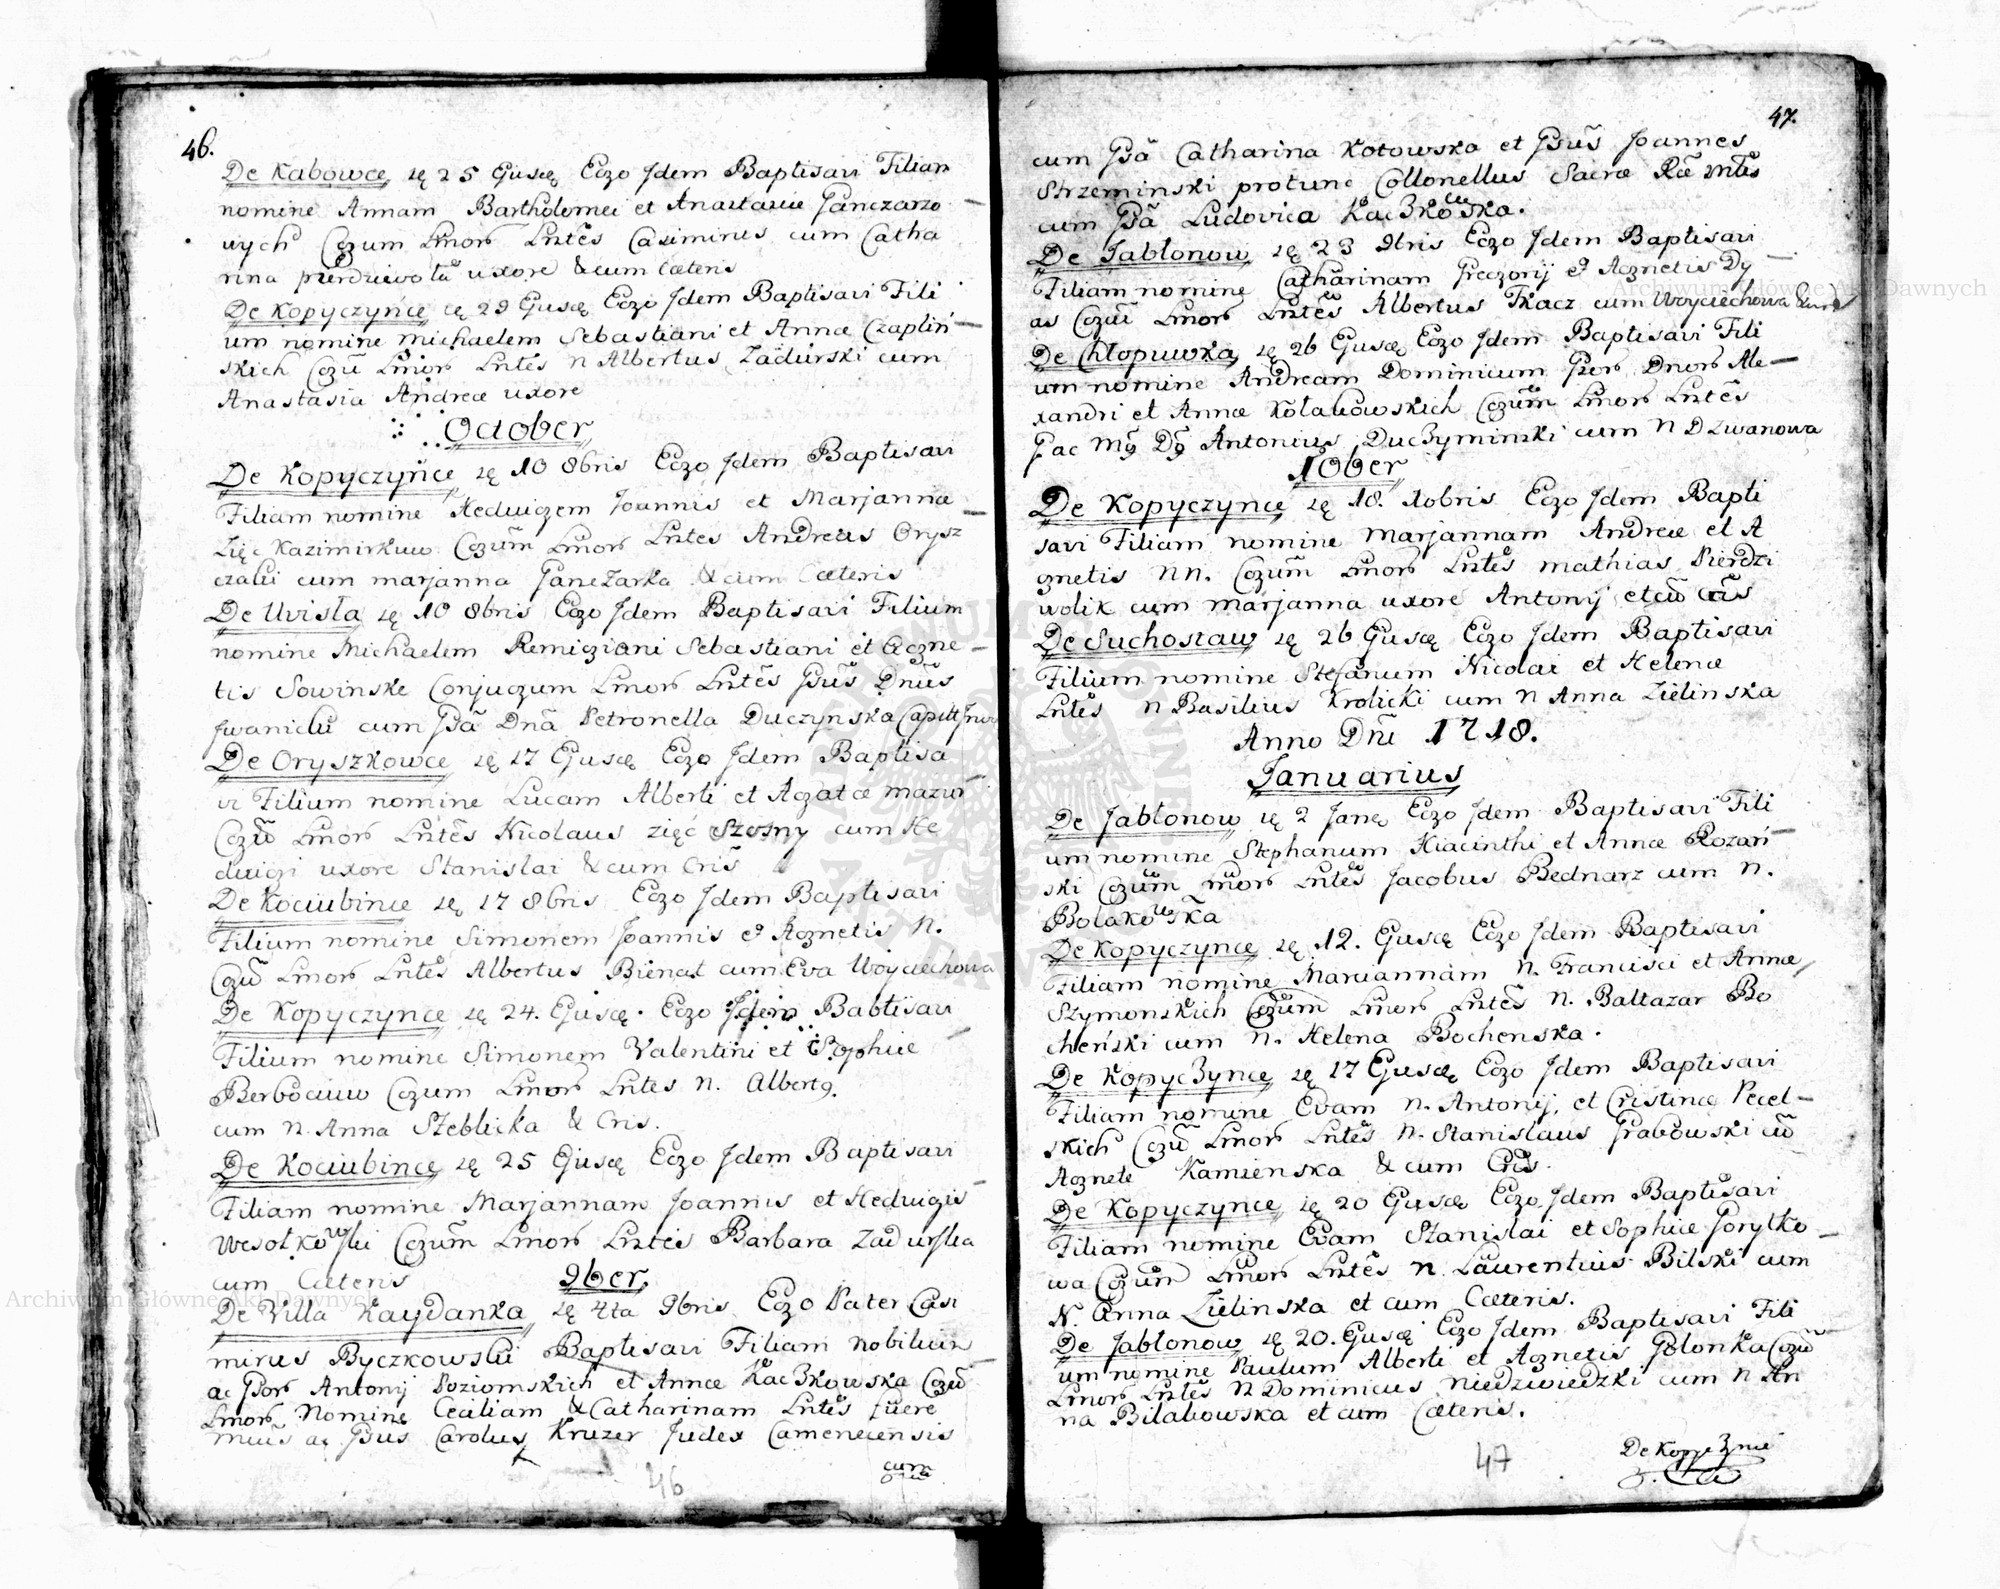 46.
De Kabowce, 25 Ejusdę Ego Idem Baptisavi Filiam
nomine Annam Bartholomei et Anastasiæ Ganczarzo
wych Coniugum Lmor Lntes Casimirus cum Catha
rina pierdziwołu uxore & cum Cæteris
De Kopyczynce ię 29 Ejusdę Ego Idem Baptisavi Fili
um nomine Michaelem Sebastiani et Annæ Czapliń
skich Lmor Lntes N Albertus Zadurski cum
Anastasia Andreæ uxore
October
De Kopyczynce ię 10 8bris Ego Idem Baptisavi
Filiam nomine Hedvigem Joannis et Marjanna
Zięc Kazimirkuw Lmor Lntes Andreas Orysz
czalu cum marjanna Ganczarka & cum Cæteris
De Uvisła ię 10 8bris Ego Idem Baptisavi Filium
nomine Michaelem Remigiani Sebastiani et Agne
tis Sowinske Conjugum Lmor Lntes Gsus Dnus
Iwanicki cum Gsa Dna Petronella Duczynska
De Oryszkowce ię 17 Ejusdę Ego Idem Baptisa
vi Filium nomine Lucam Alberti et Agatæ mazur
Lmor Lntes Nicolaus zięć Szosny cum He
dwigi uxore Stanislai & cum Cris
De Kociubince ię 17 8bris Ego Idem Baptisavi
Filium nomine Simonem Joannis et Agnetis N.
Lmor Lntes Albertus Bienast cum Eva Woyciechowa
De Kopyczynce ię 24. Ejusdę. Ego Idem Babtisavi
Filium nomine Simonem Valentini et Sophiæ
Berbeciuw Lmor Lntes N. Albert9.
cum N. Anna Steblicka & Cris.
De Kociubince ię 25 Ejusdę Ego Idem Baptisavi
Filiam nomine Marjannam Joannis et Hedvigis
Wesołkowski Lmor Lntes Barbara Zadurska
cum Cæteris
9ber
De Villa Kaydanka ię 4ta 9bris Ego Pater Casi
mirus Byczkowski Baptisavi Filiam nobilium
ac Gsor Antonij Poziomskich et Annæ Kaczkowska
Lmor Nomine Ceciliam & Catharinam Lntes fuere
Gsus Carolus Kruzer Judex Camenecensis
cum
46
47.
cum Gsa Catharina Kotowska et Gsus Joannes
Strzeminski protunc Collonellus Sacræ Ræ Mtis
cum Gsa Ludovica Kaczkowska.
De Jabłonow ię 23 9bris Ego Idem Baptisavi
Filiam nomine Catharinam Gregorij et Agnetis Dy
as Lmor Lntes Albertus Tkacz cum Woyciechowa
De Chłopuwka ię 26 Ejusdę Ego Idem Baptisavi Fili
um nomine Andream Dominicum Gsor Dnor Ale
xandri et Annæ Kołakowskich Lmor Lntes
Antonius Duczyminski cum N Dzwanowa
10ber
De Kopyczynce ię 18. 10bris Ego Idem Bapti
savi Filiam nomine Marjannam Andreæ et A
gnetis NN. Lmor Lntes mathias Pierdzi
wolik cum marjanna uxore Antonij et cū cris
De Suchostaw ię 26 Ejusdę Ego Idem Baptisavi
Filium nomine Stefanum Nicolai et Helenæ
Lntes N Basilius Krolicki cum N Anna Zielinska
Anno Dñi 1718.
Januarius
De Jabłonow ię 2 Janę Ego Idem Baptisavi Fili
um nomine Stephanum Hiacinthi et Annæ Rozań
ski Lmor Lntes Jacobus Bednarz cum N.
Bolakowska
De Kopyczynce ię 12. Ejusdę Ego Idem Baptisavi
Filiam nomine Mariannam N. Francisci et Annæ
Szymonskich Lmor Lntes N. Baltazar Bo
cheński cum N. Helena Bochenska.
De Kopyczynce ię 17 Ejusdę Ego Idem Baptisavi
Filiam nomine Evam N. Antonij, et Cristinæ Pecel
skich Lmor Lntes N. Stanislaus Grabowski cū
Agnete Kamienska & cum Cris.
De Kopyczynce ię 20 Ejusdę Ego Idem Baptisavi
Filiam nomine Evam Stanislai et Sophiæ Gorytko
wa Lmor Lntes N. Laurentius Bilski cum
N. Anna Zielinska et cum Cæteris.
De Jabłonow ię 20. Ejusdę Ego Idem Baptisavi Fili
um nomine Paulum Alberti et Agnetis Golonka
Lmor Lntes N Dominicus Niedzwiedzki cum N An
na Bilabowska et cum Cæteris.
De Kopyczynce
47
Archiwum Główne Akt Dawnych
Archiwum Główne Akt Dawnych
Archiwum Główne Akt Dawnych